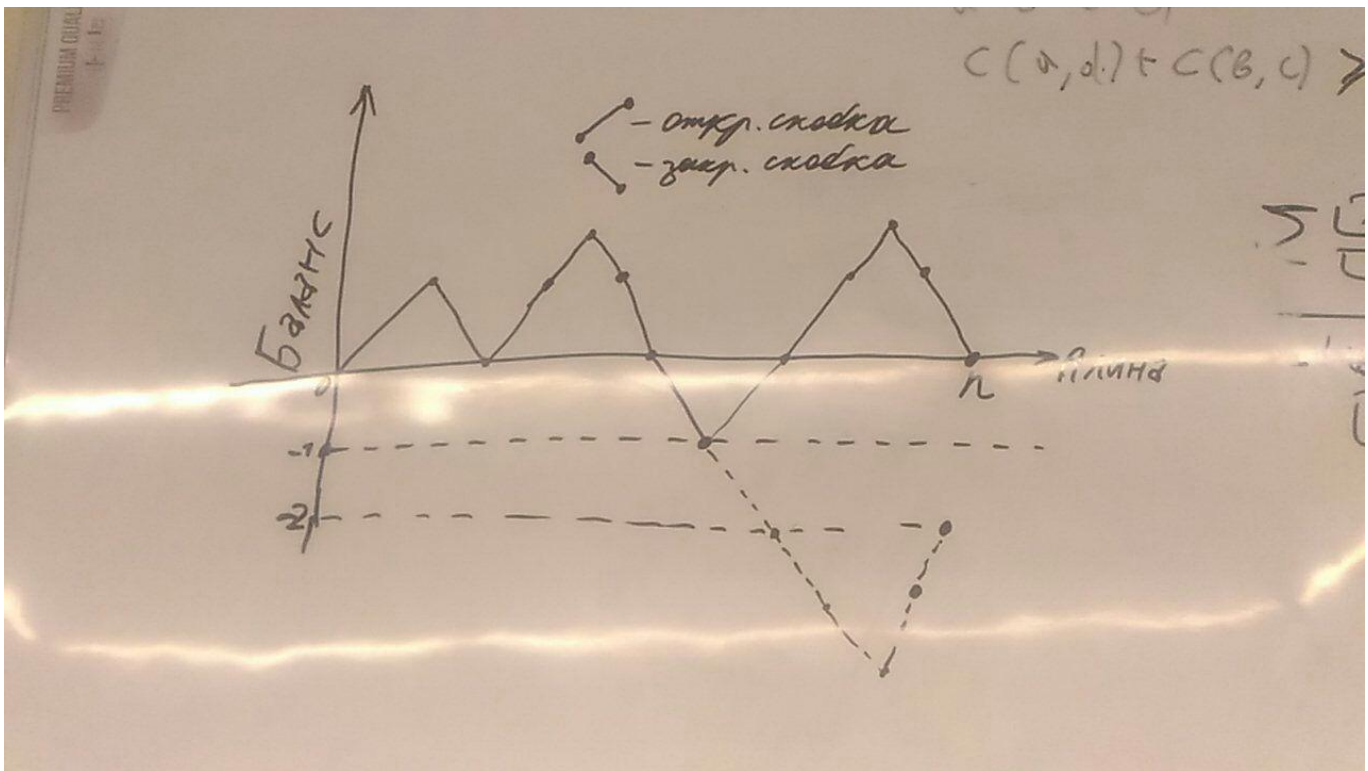 PREMIUM QUAL
C(a,d) + C(b,c) ≥
– откр. скобка
– закр. скобка
Баланс
0
n
Длина
-1
-2
Σ